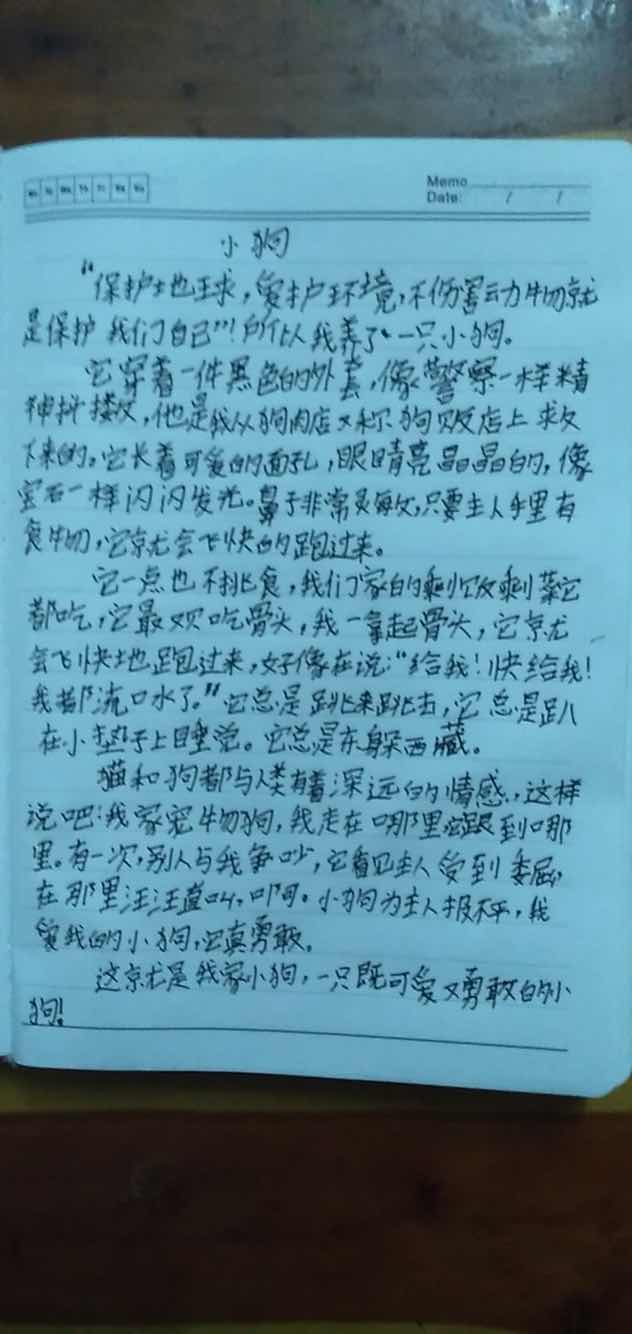 Memo
Date: / /
小狗
“保护地球,爱护环境,不伤害动物就
是保护我们自己”!所以我养了一只小狗。
它穿着一件黑色的外套,像警察一样精
神抖擞,他是我从狗肉店又称狗贩店上救
下来的。它长着可爱的面孔,眼睛亮晶晶的,像
宝石一样闪闪发光。鼻子非常灵敏,只要主人手里有
食物,它就会飞快的跑过来。
它一点也不挑食,我们家的剩饭剩菜它
都吃,它最欢吃骨头,我一拿起骨头,它就
会飞快地跑过来,好像在说:“给我!快给我!
我都流口水了。”它总是跳来跳去,它总是趴
在小垫子上睡觉。它总是东躲西藏。
猫和狗都与人类有着深远的情感,这样
说吧:我家宠物狗,我走在哪里它跟到哪
里。有一次,别人与我争吵,它看见主人受到委屈,
在那里汪汪直叫。啊。小狗为主人报不平,我
爱我的小狗,它真勇敢。
这就是我家小狗,一只既可爱又勇敢的小
狗!